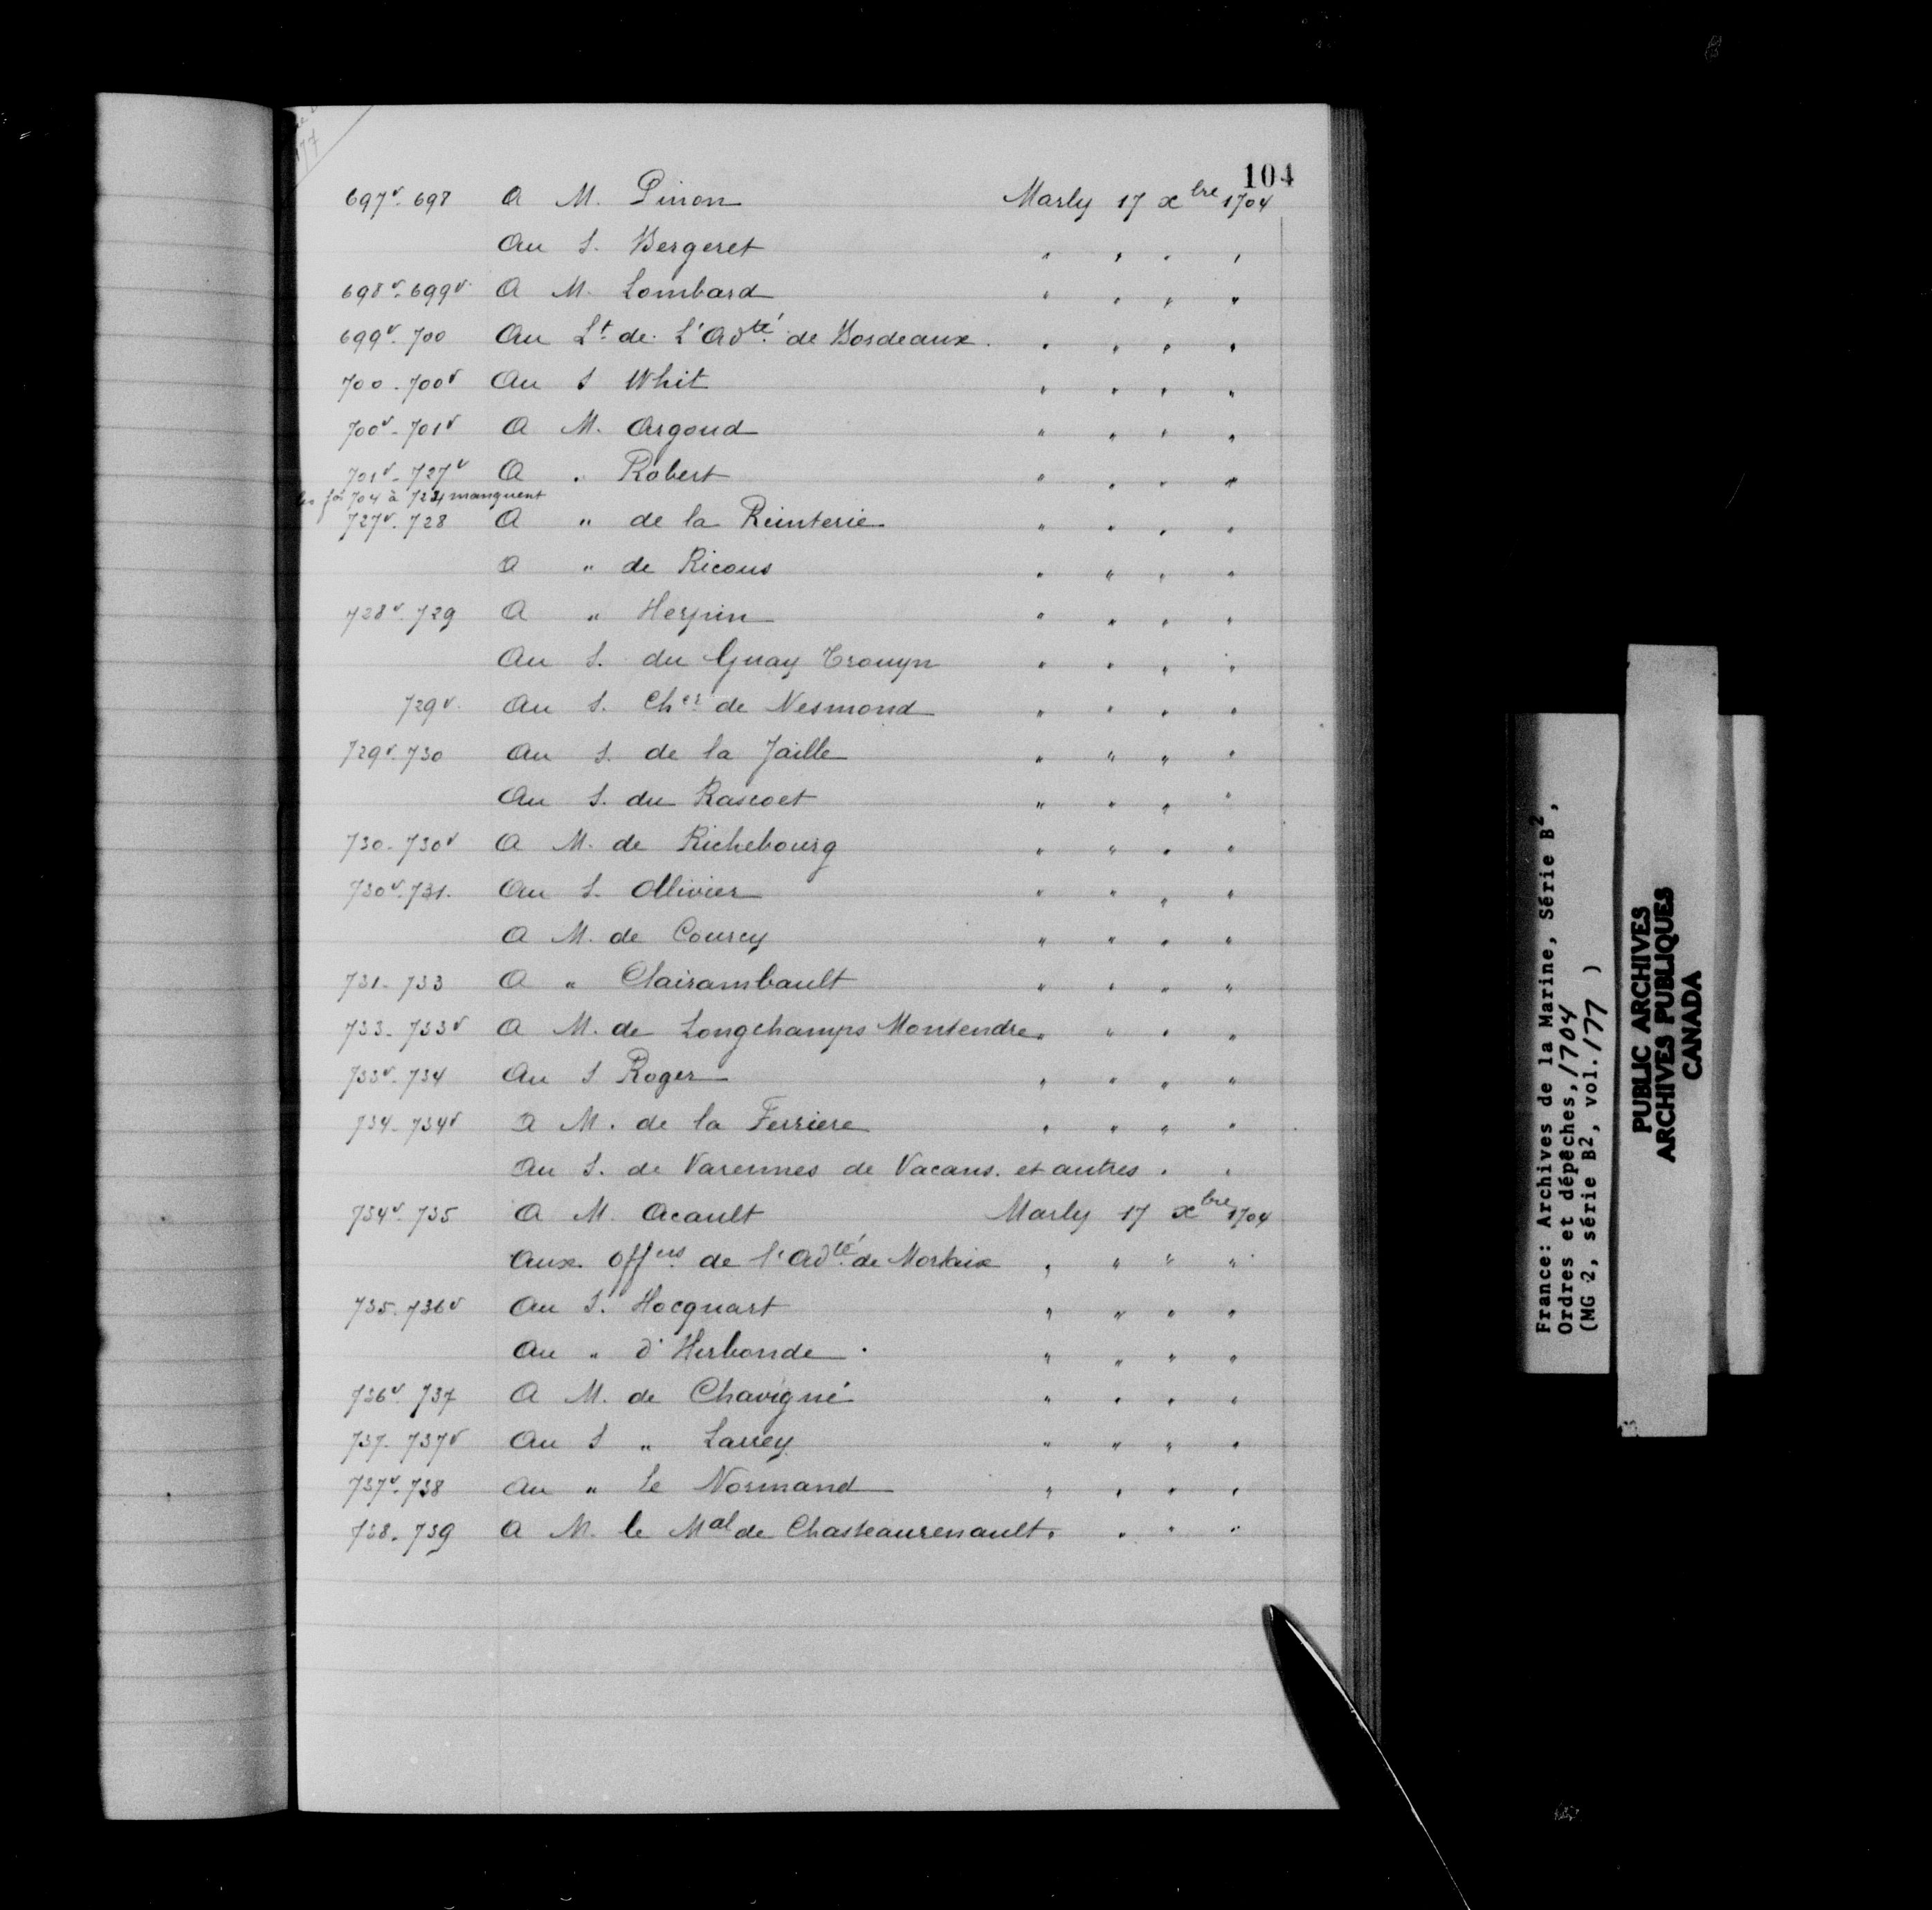 104
697v. 698 A M. Pinon Marly 17 xbre 1704
Au S. Bergeret " " " "
698v. 699v. A M. Lombard " " " "
699v. 700 Au Lt. de L'Adté. de Bordeaux. " " " "
700 - 700v Au S Whit " " " "
700v - 701v A M. Argoud " " " "
701v - 727v A " Robert " " " "
les fos 704 à 724 manquent
727v. 728 A " de la Reinterie " " " "
A " de Ricous " " " "
728v. 729 A " Herpin " " " "
Au S. du Guay Trouyn " " " "
729v. Au S. Cher de Nesmond " " " "
729v. 730 Au S. de la Jaille " " " "
Au S. du Rascoet " " " "
730 - 730v A M. de Richebourg " " " "
730v. 731. Au S. Ollivier " " " "
A M. de Courcy " " " "
731 - 733 A " Clairambault " " " "
733 - 733v A M. de Longchamps Montendre " " " "
733v. 734 Au S Roger " " " "
734 - 734v A M. de la Ferriere " " " "
Au S. de Varennes de Vacans. et autres " "
734v. 735 A M. Acault Marly 17 xbre 1704
Aux Offers de l'Adté. de Morlaix " " " "
735. 736v Au S. Hocquart " " " "
Au " d'Herbonde " " " "
736v. 737 A M. de Chavigné " " " "
737. 737v Au S " Larrey " " " "
737v. 738 Au " Le Normand " " " "
738. 739 A M. le Mal de Chasteaurenault " " " "
France: Archives de la Marine, Série B2,
Ordres et dépêches, 1704
(MG 2, série B2, vol. 177 )
PUBLIC ARCHIVES
ARCHIVES PUBLIQUES
CANADA